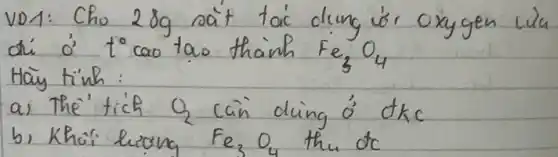 VD1: Cho 28g sắt tác dụng với Oxygen vừa
đủ ở t° cao tạo thành Fe₃O₄
Hãy tính:
a, Thể tích O₂ cần dùng ở đkc
b, Khối lượng Fe₃O₄ thu đc